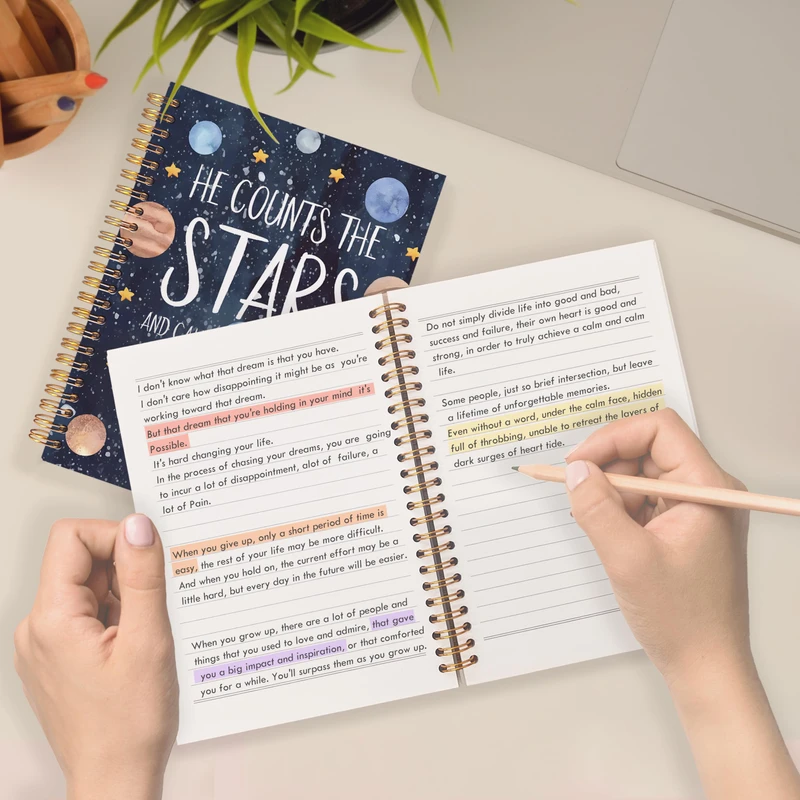 HE COUNTS THE
STARS
AND
I don't know what that dream is that you have.
I don't care how disappointing it might be as you're
working toward that dream.
But that dream that you're holding in your mind it's
Possible.
It's hard changing your life.
In the process of chasing your dreams, you are going
to incur a lot of disappointment, alot of failure, a
lot of Pain.
When you give up, only a short period of time is
easy, the rest of your life may be more difficult.
And when you hold on, the current effort may be a
little hard, but every day in the future will be easier.
When you grow up, there are a lot of people and
things that you used to love and admire, that gave
you a big impact and inspiration, or that comforted
you for a while. You'll surpass them as you grow up.
Do not simply divide life into good and bad,
success and failure, their own heart is good and
strong, in order to truly achieve a calm and calm
life.
Some people, just so brief intersection, but leave
a lifetime of unforgettable memories.
Even without a word, under the calm face, hidden
full of throbbing, unable to retreat the layers of
dark surges of heart tide.